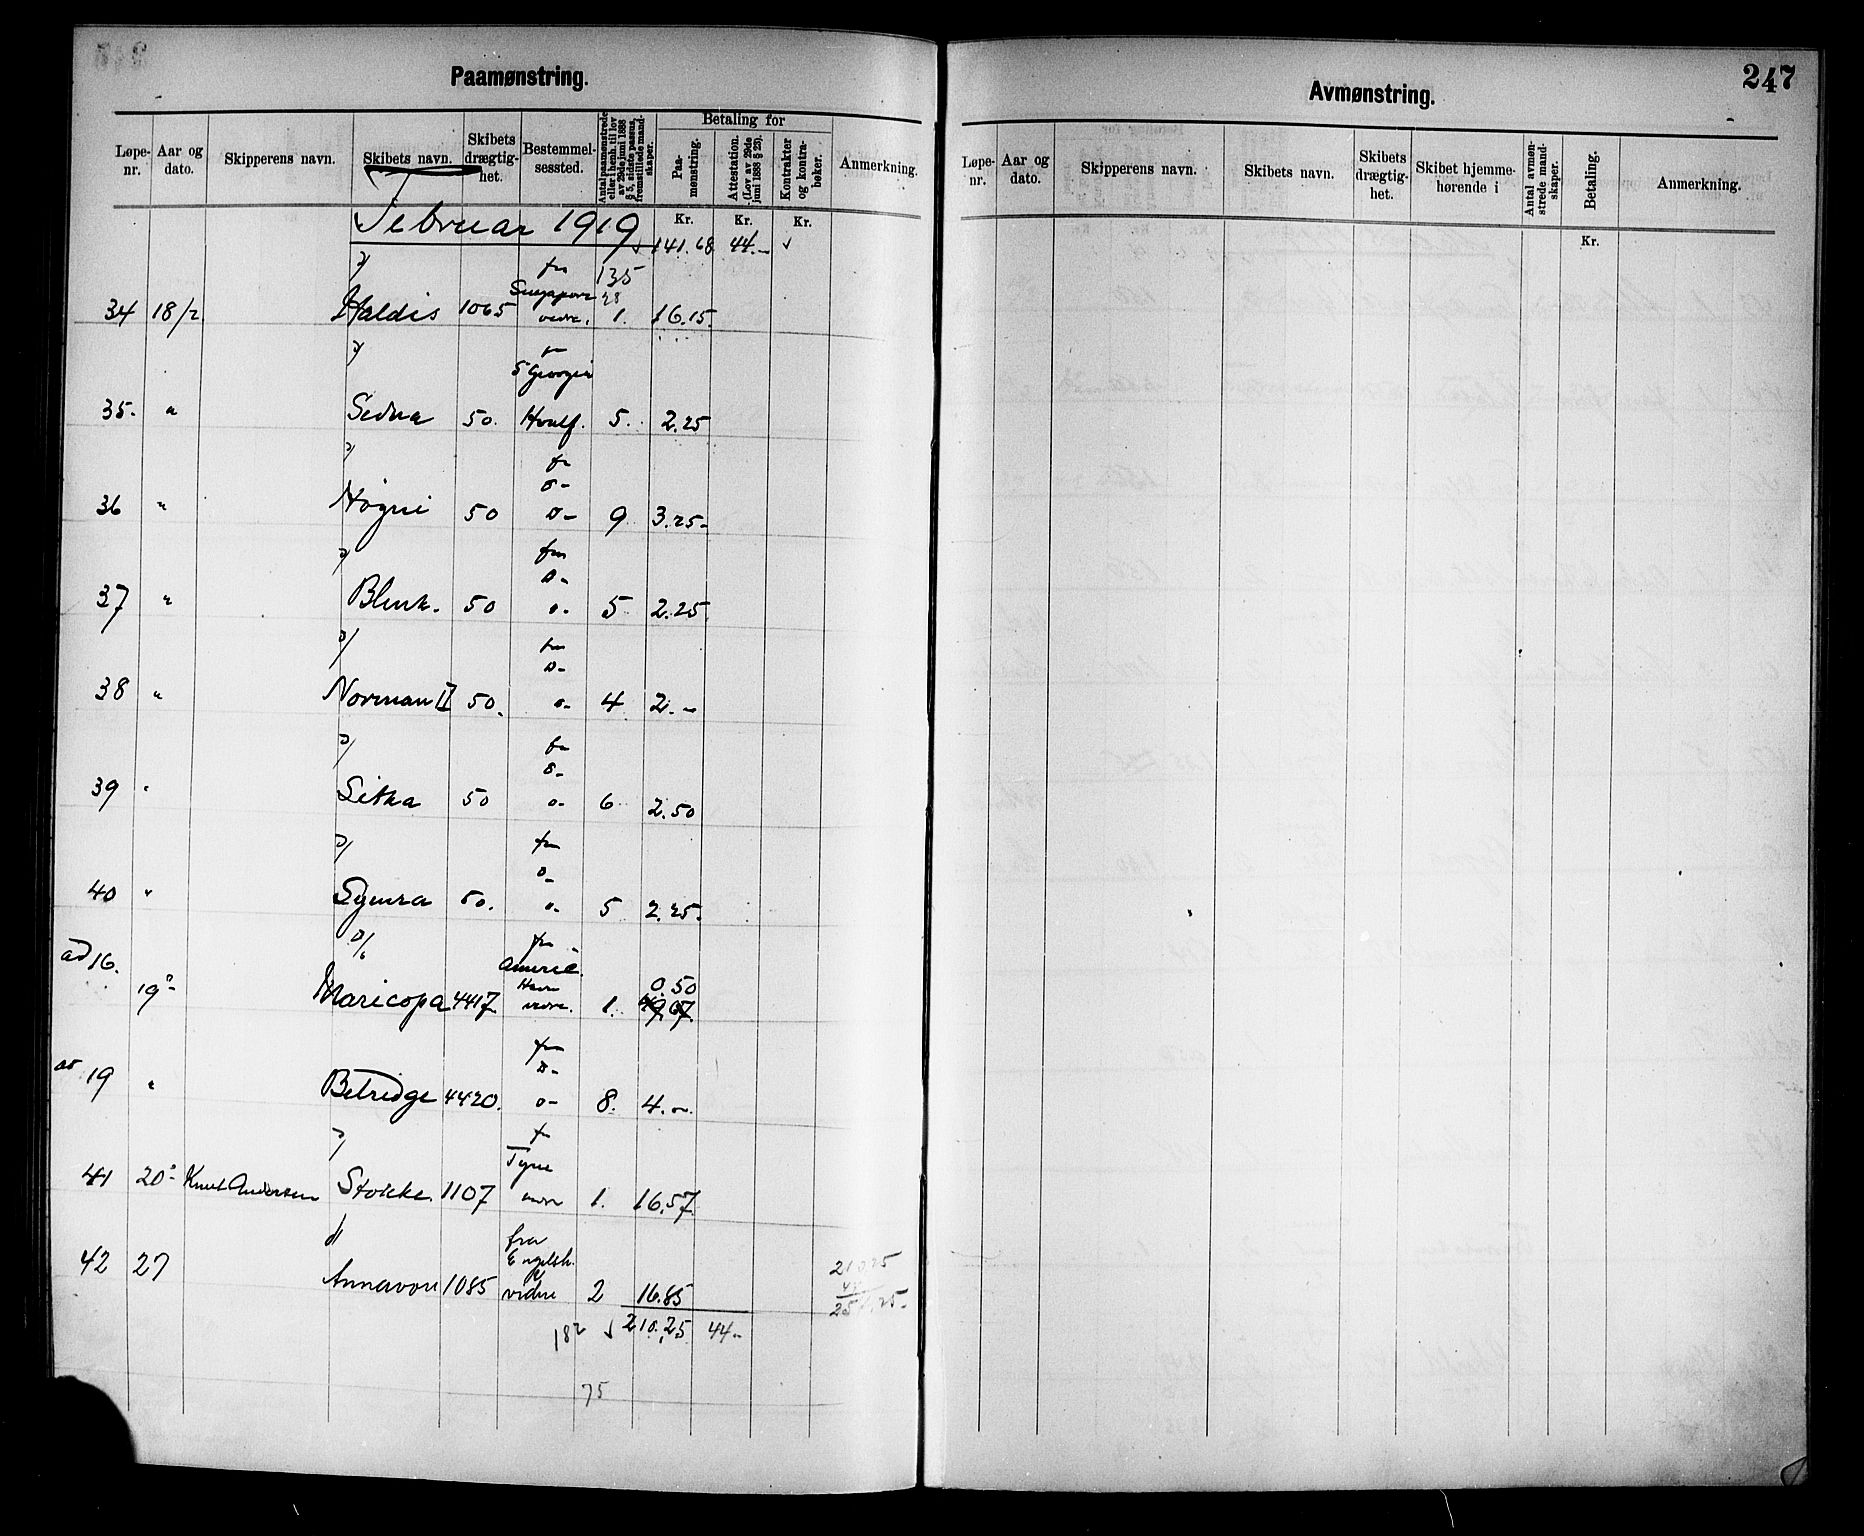 Paamønstring.
Løpe-nr. Aar og dato. Skipperens navn. Skibets navn. Skibets drægtig-het. Bestemmel-sessted. Antal paamønstrede eller i henh. til lov av 29de juni 1888 § 5, sidste passus, fremstillede mand-skaper. Betaling for Paa-mønstring. Attestation. (Lov av 29de juni 1888 § 23). Kontrakter og kontra-bøker. Anmerkning.
Februar 1919 Kr. Kr. Kr.
141.68 44.-
135
28
34 18/2 Haldis 1065 fra Singapore vidre. 1. 16.15.
35. " Sedna 50. fr S Georgia Hvalf. 5. 2.25
36 " Høgni 50 fr D- D- 9 3.25-
37 " Blink. 50 fra D- D- 5 2.25.
38 " Norman II 50. fra D- D- 4 2.-
39 " Sitka 50 fr D- D- 6 2.50
40 " Symra 50. fra D- D- 5 2.25.
ad 16. 19 D/s Maricopa 4417 fra Americ. Havn vidre. 1. 0.50
49,67.
ad 19 " Betridge 4420. fra D- D- 8. 4.-
41 20 Knut Andersen Stokke. 1107 fr Tyne vidre 1. 16.57
42 27 Annavore 1085 fra Engelsk. vidre 2 16.85
210.25
44
254.25.
182 210.25 44-
75
247
Avmønstring.
Løpe-nr. Aar og dato. Skipperens navn. Skibets navn. Skibets drægtig-het. Skibet hjemme-hørende i Antal avmøn-strede mand-skaper. Betaling. Anmerkning.
Kr.